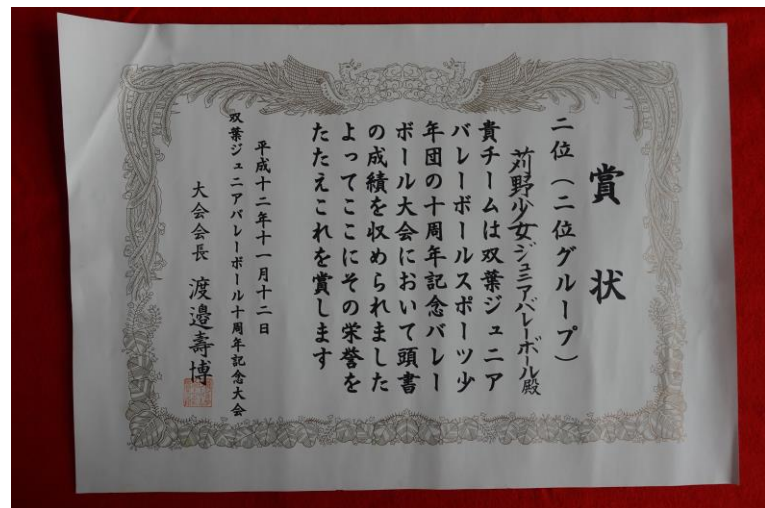 賞状
二位（二位グループ）
苅野少女ジュニアバレーボール殿
貴チームは双葉ジュニア
バレーボールスポーツ少
年団の十周年記念バレー
ボール大会において頭書
の成績を収められました
よってここにその栄誉を
たたえこれを賞します
平成十二年十一月十二日
双葉ジュニアバレーボール十周年記念大会
大会会長 渡邉壽博